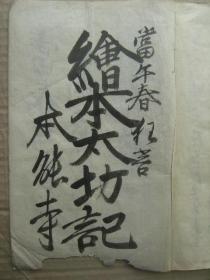 當午春狂言
繪本太功記
本能寺